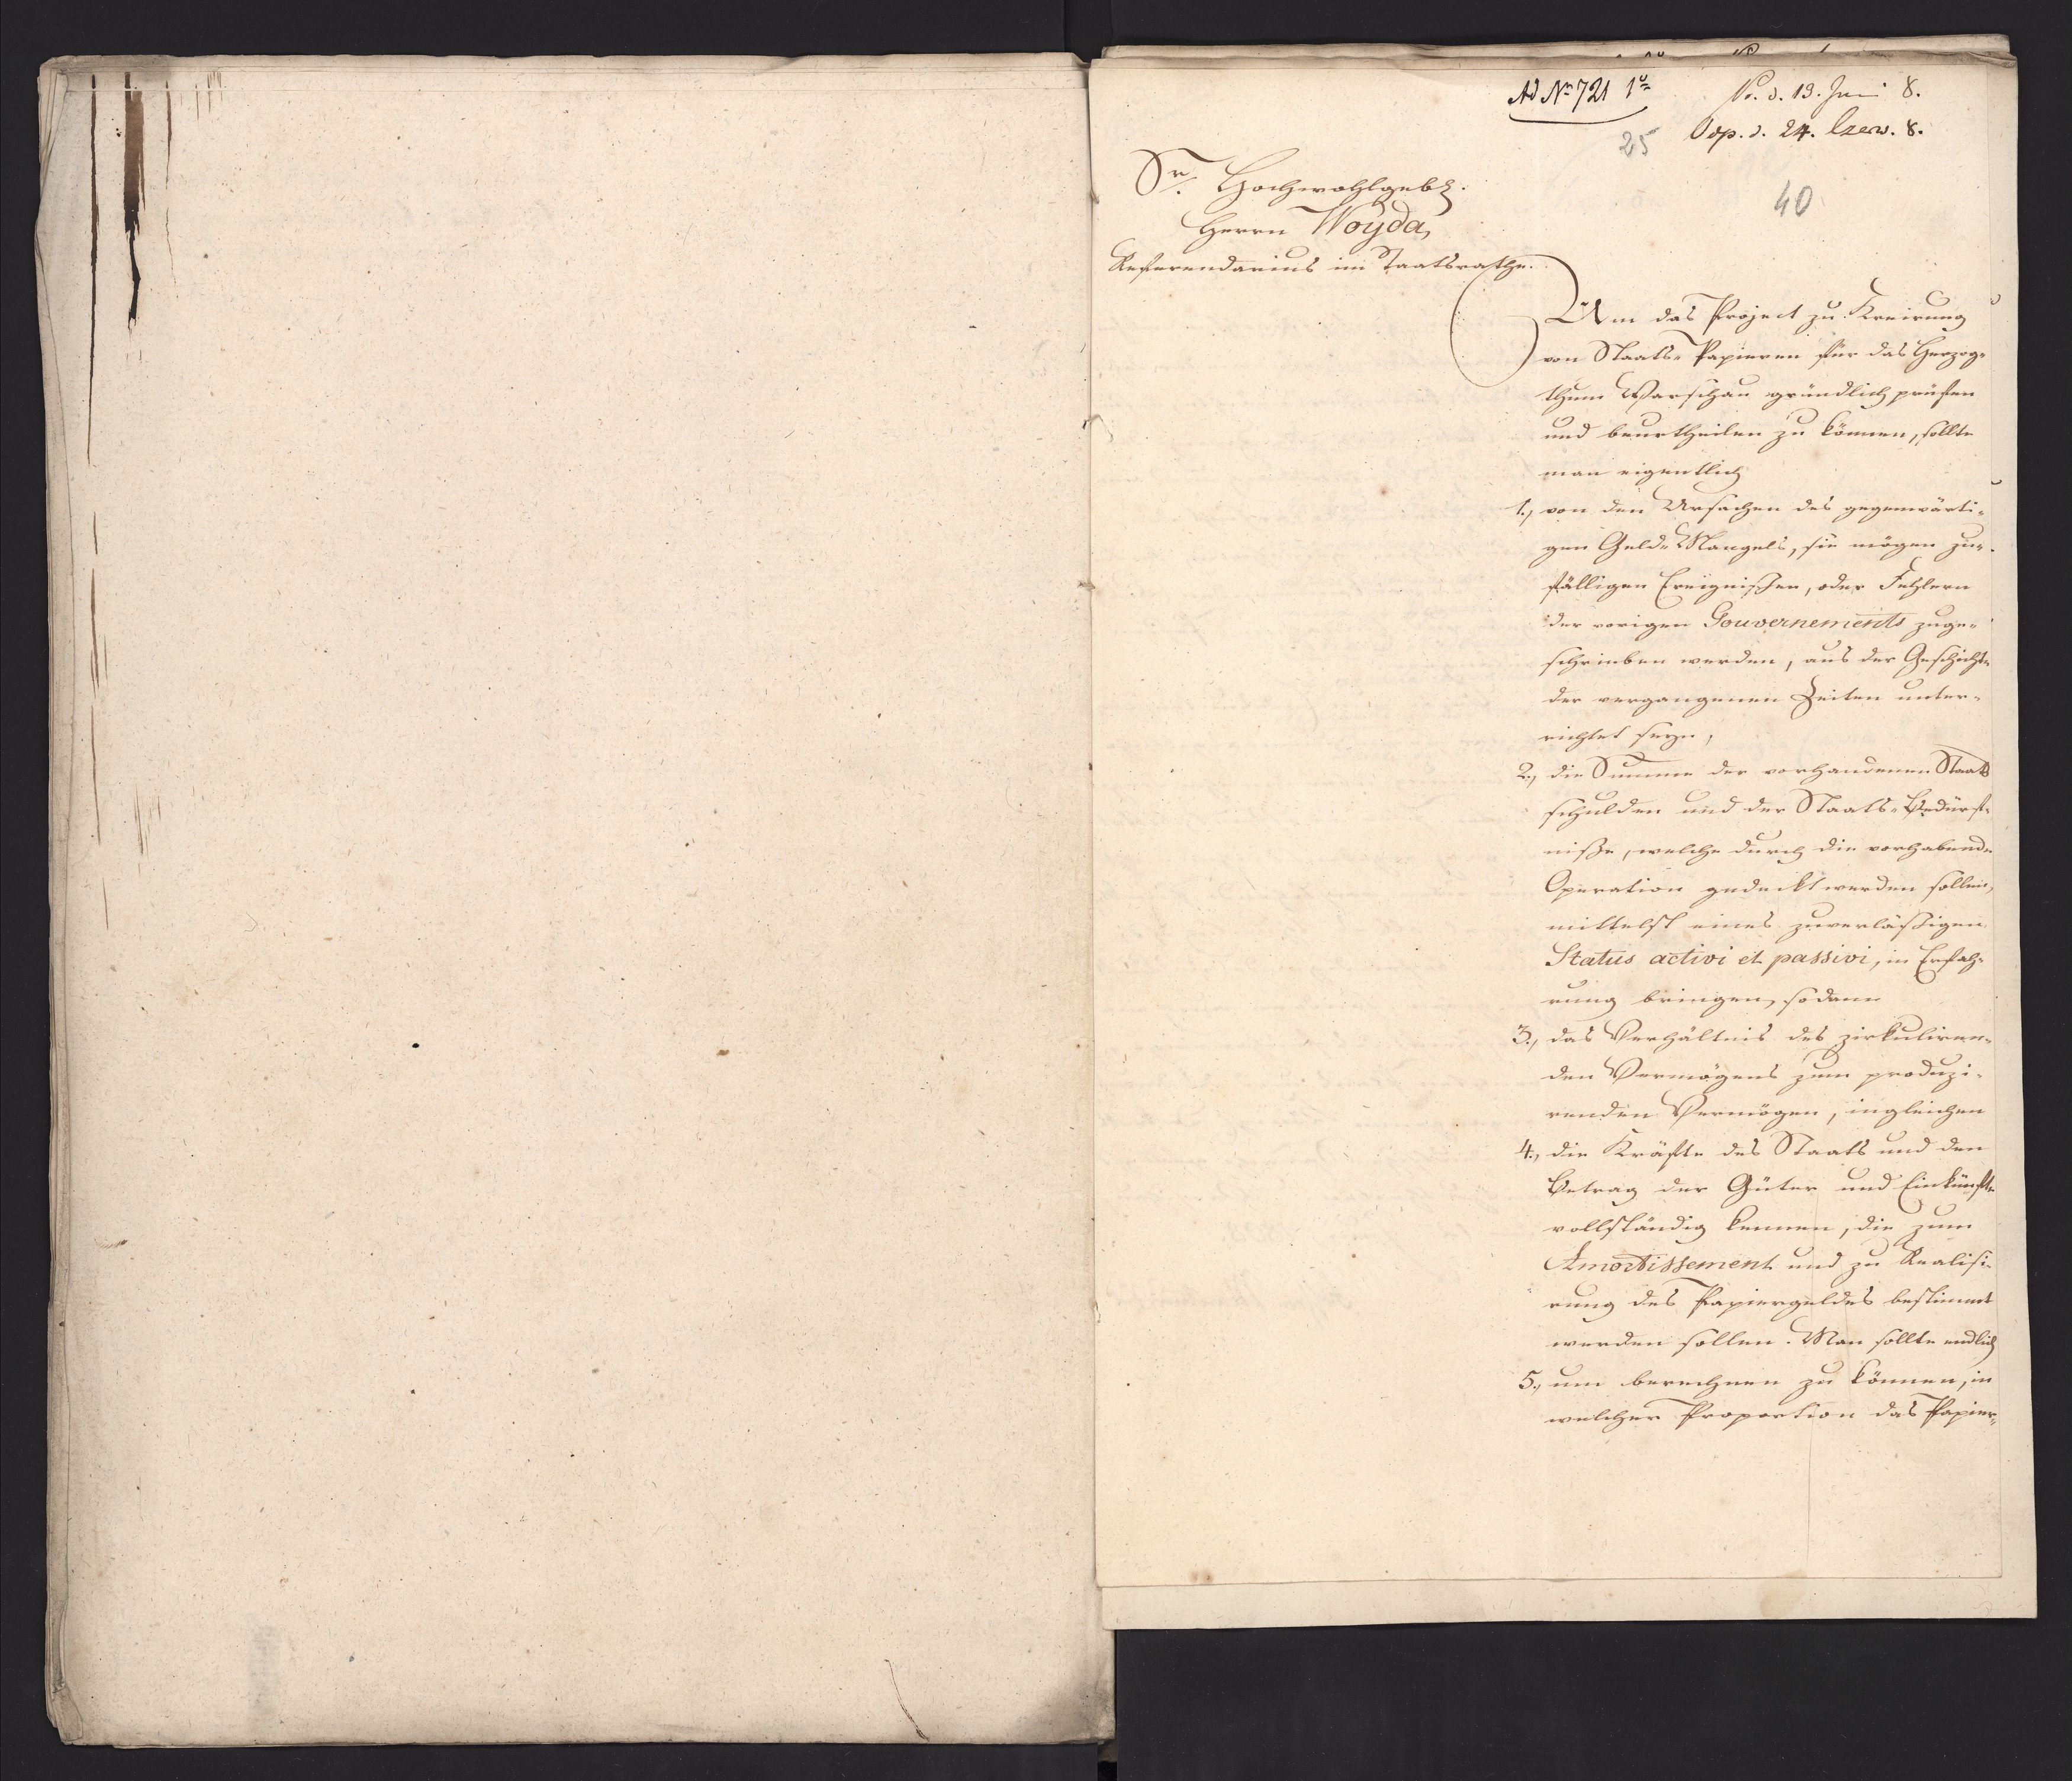 Ad Nr. 721 1o
Pr. d. 13. Juni 8.
Odp. d. 24. Czerw. 8.
25
40
Sr. Hochwohlgeb.
Herrn Woyda,
Referendarius im Staatsrathe.
Um das Project zu Kreirung
von Staats-Papieren für das Herzog-
thum Warschau gründlich prüfen
und beurtheilen zu können, sollte
man eigentlich
1., von den Ursachen des gegenwärti-
gen Geld-Mangels, sie mögen zu-
fälligen Ereignißen, oder Fehlern
der vorigen Gouvernements zuge-
schrieben werden, aus der Geschichte
der vergangenen Zeiten unter-
richtet seyn,
2., die Summe der vorhandenen Staats
schulden und der Staats-Bedürf-
niße, welche durch die vorhabende
Operation gedeckt werden sollen,
mittelst eines zuverläßigen
Status activi et passivi, in Erfah-
rung bringen, sodann
3., das Verhältnis des zirkuliren-
den Vermögens zum produzi-
renden Vermögen, ingleichen
4., die Kräfte des Staats und den
Betrag der Güter und Einkünfte
vollständig kennen, die zum
Amortissement und zu Realisi-
rung des Papiergeldes bestimmt
werden sollen. Man sollte endlich
5., um berechnen zu können, in
welcher Proportion das Papier-